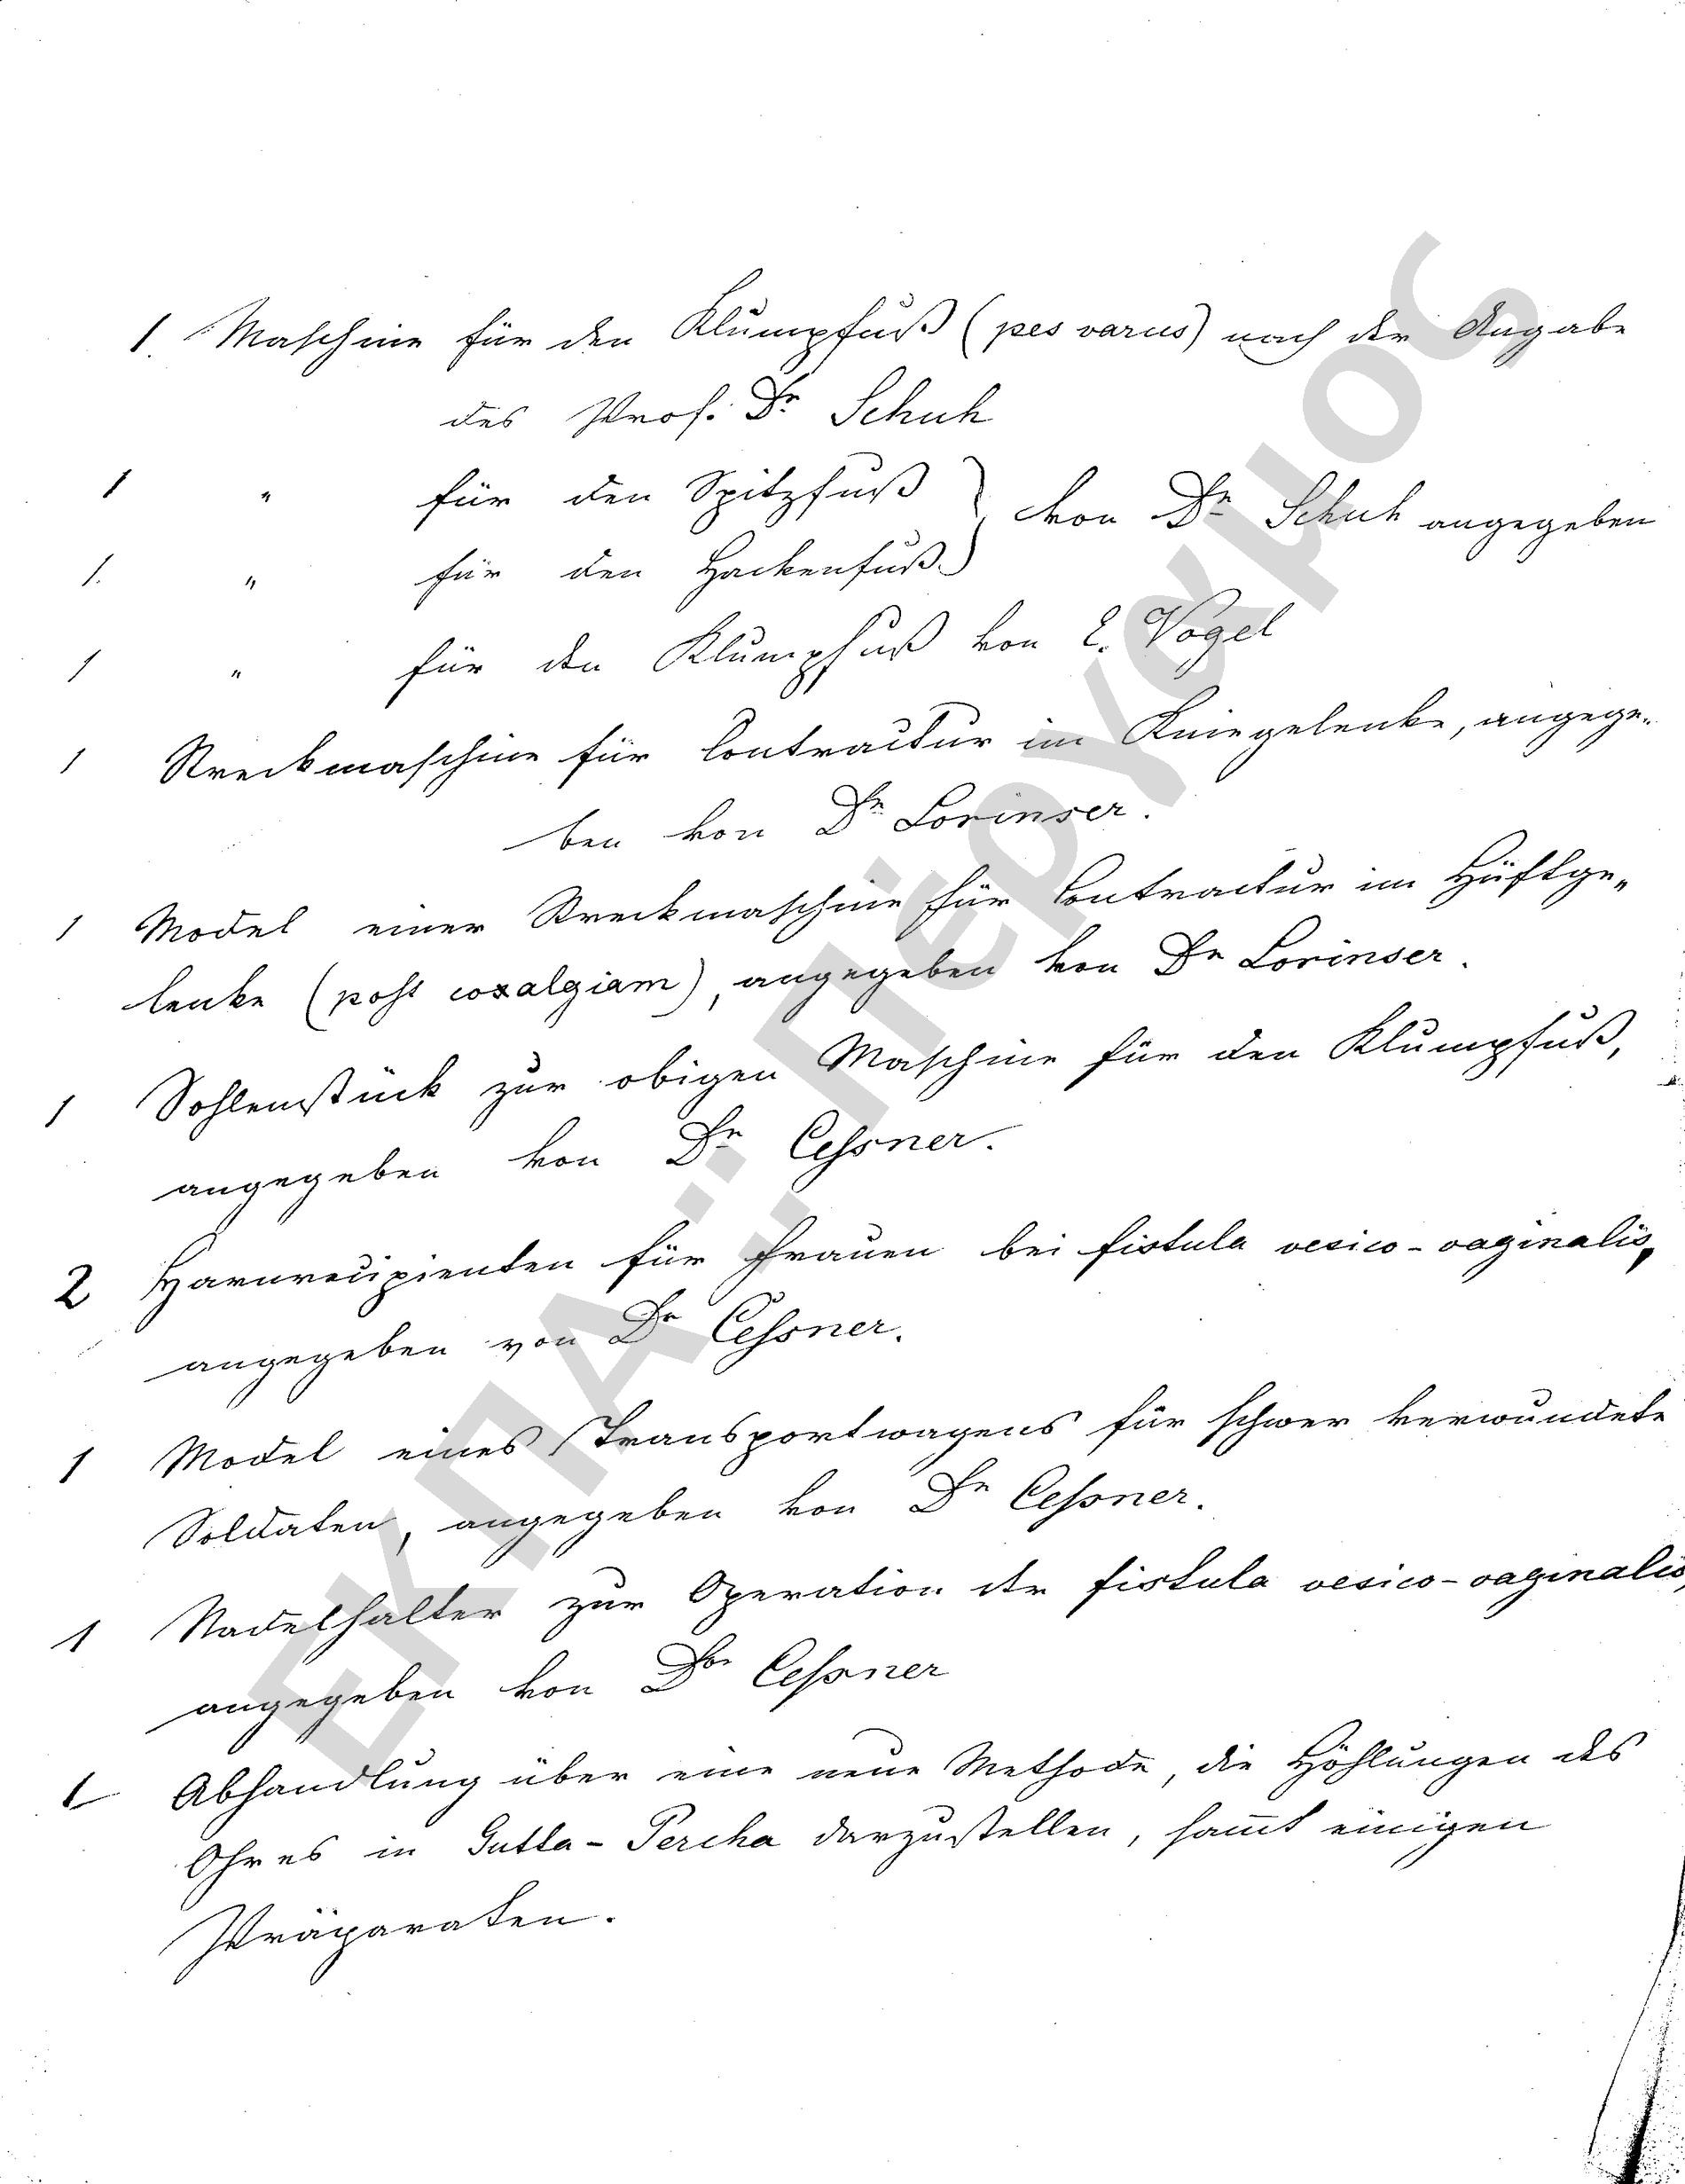 1 Maschine für den Klumpfuß (pes varus) nach der Angabe
des Prof. Dr Schuh
1 " für den Spitzfuß
von Dr Schuh angegeben
1. " für den Hackenfuß
1 " für den Klumpfuß von L. Vogel
1 Streckmaschine für Contractur im Kniegelenke, angege-
ben von Dr Lorinser.
1 Model einer Streckmaschine für Contractur im Hüftge-
lenke (post coxalgiam), angegeben von Dr Lorinser.
1 Sohlenstück zur obigen Maschine für den Klumpfuß,
angegeben von Dr Cessner.
2 Harnrecipienten für Frauen bei fistula vesico-vaginalis,
angegeben von Dr Cessner.
1 Model eines Transportwagens für schwer verwundete
Soldaten, angegeben von Dr Cessner.
1 Nadelhalter zur Operation der fistula vesico-vaginalis,
angegeben von Dr Cessner
1 Abhandlung über eine neue Methode, die Höhlungen des
Ohres in Gutta-Percha darzustellen, sam̅t einigen
Präparaten.